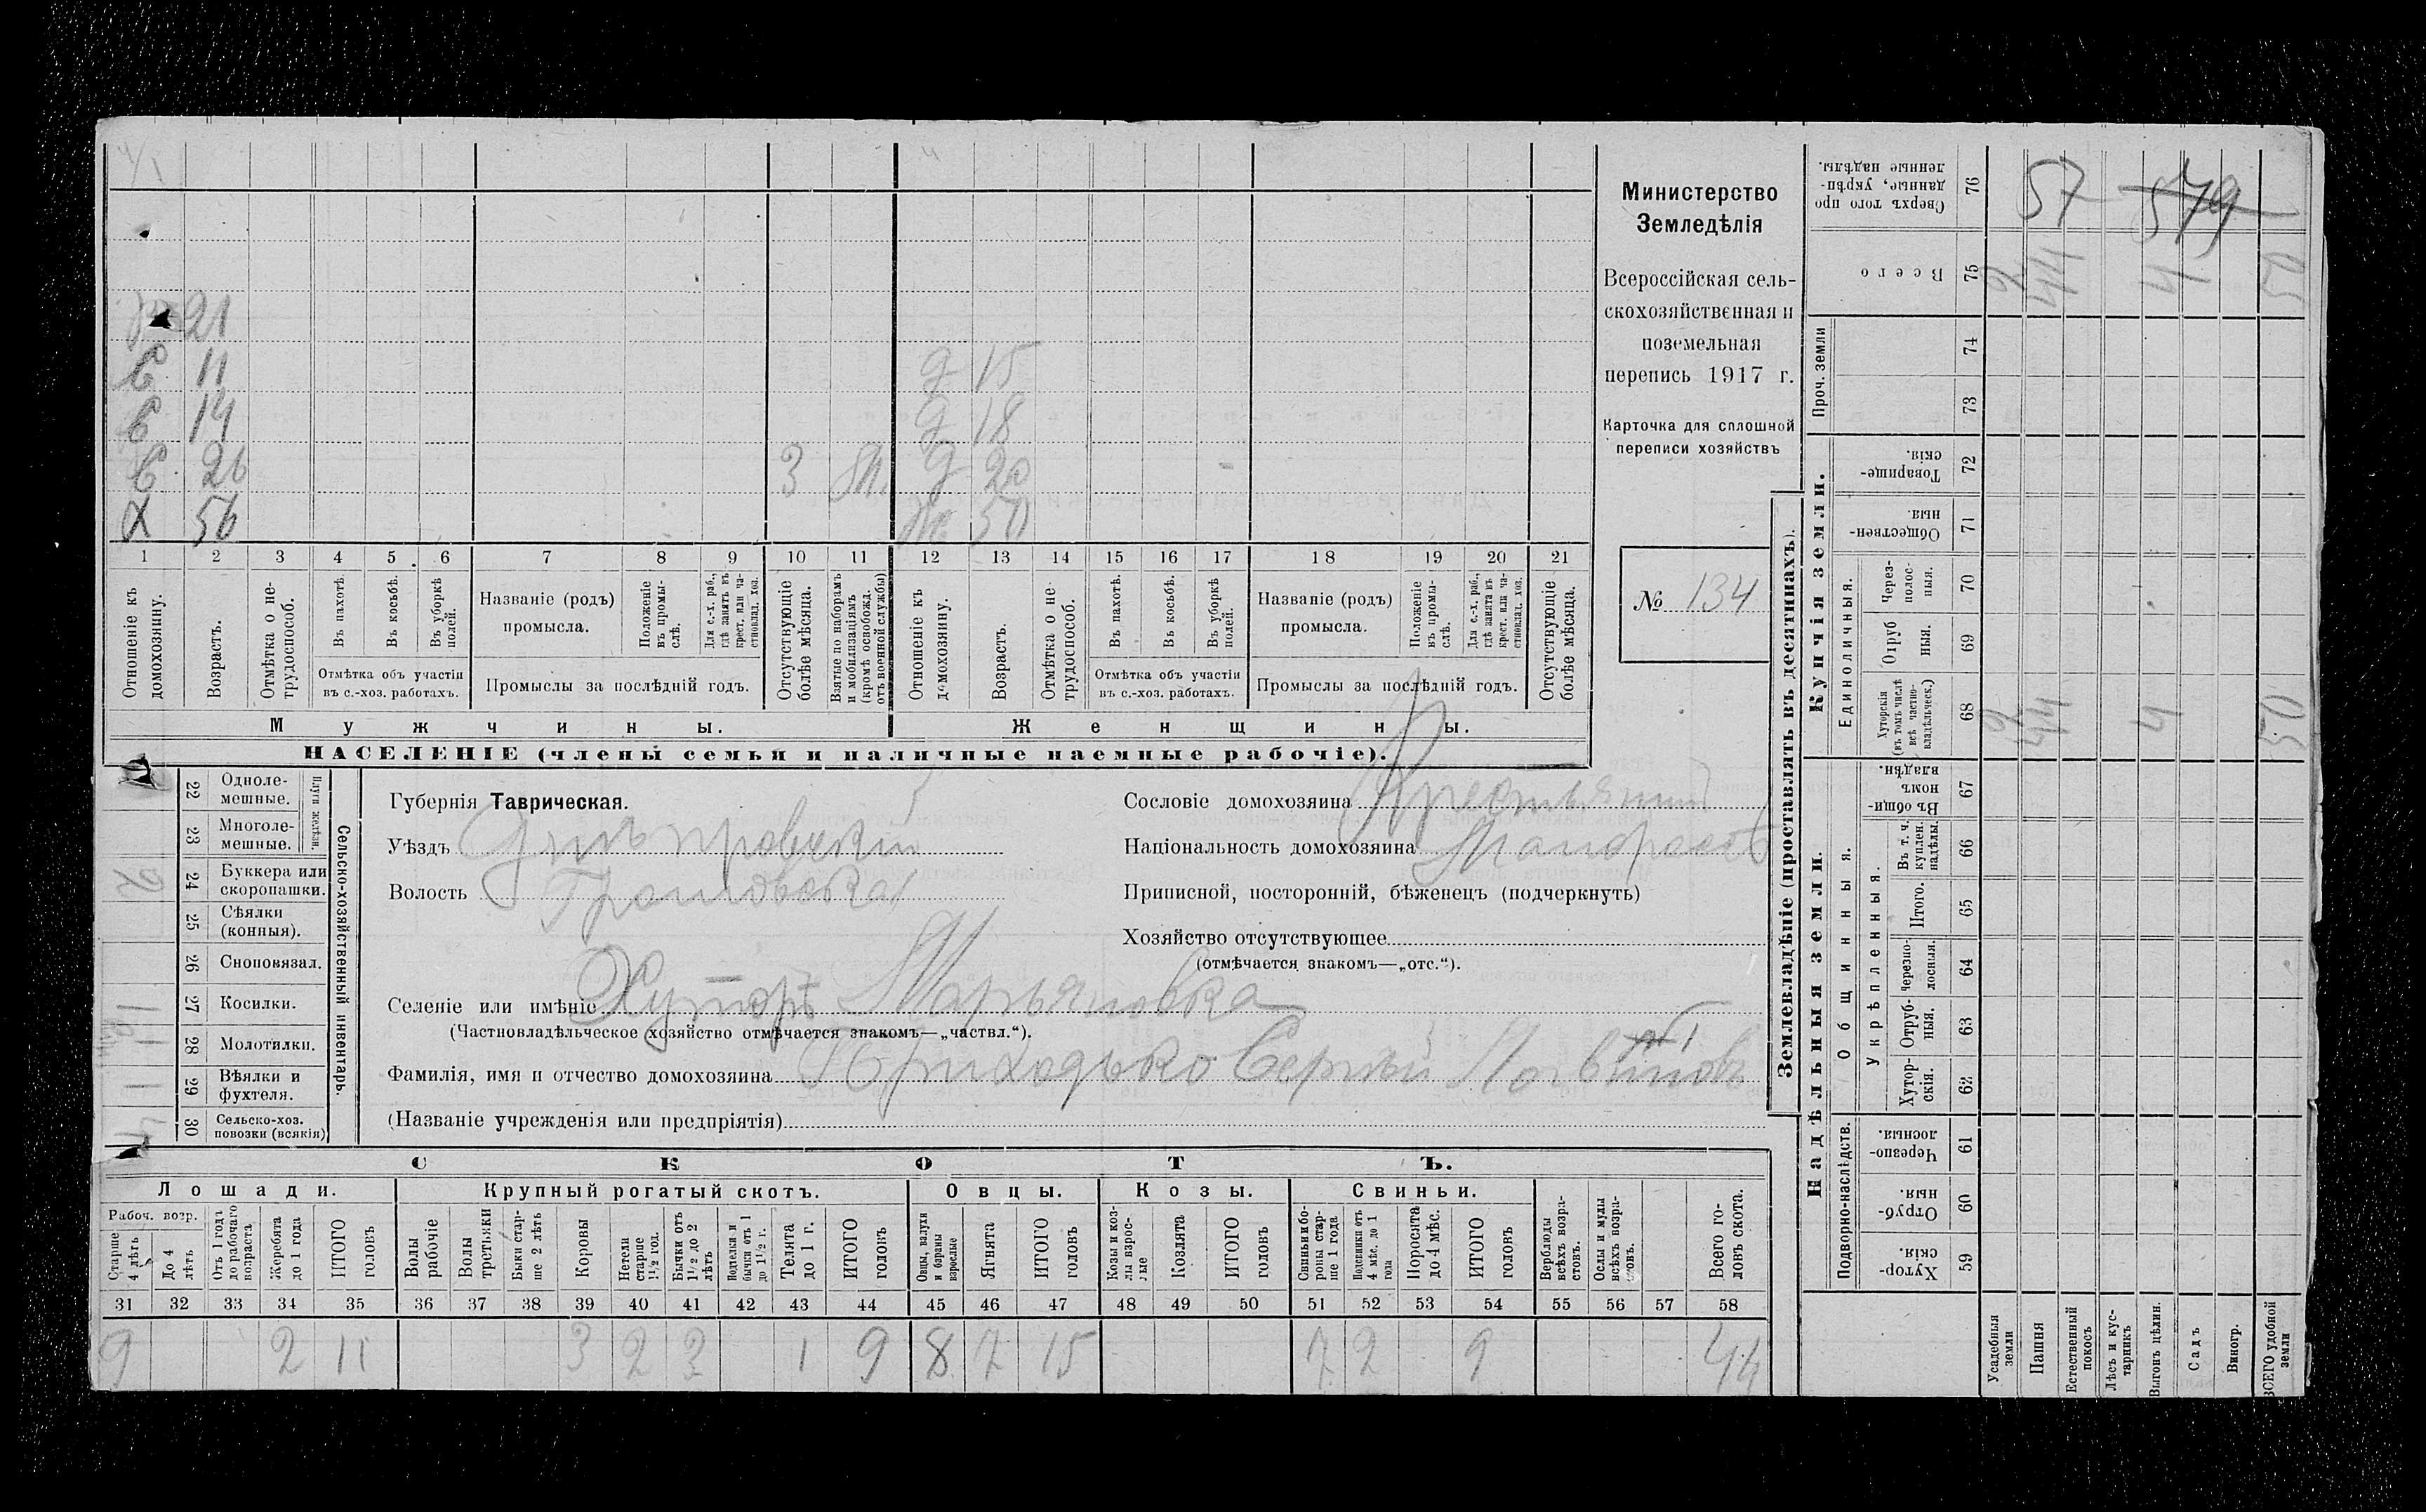 57 579
р. 21
С 11 д 15
С 14 д 18
С 26 3 М. д 20
Х 56 Ж 50
1 2 3 4 5 6 7 8 9 10 11 12 13 14 15 16 17 18 19 20 21
Отношеніе къ домохозяину.
Возрастъ.
Отмѣтка о нетрудоспособ.
Въ пахотѣ.
Въ косьбѣ.
Въ уборкѣ полей.
Отмѣтка объ участіи
въ с.-хоз. работахъ.
Названіе (родъ)
промысла.
Положеніе въ промыслѣ.
Для с.-х. раб., гдѣ занятъ въ крест. или частновлад. хоз.
Промыслы за послѣдній годъ.
Отсутствующіе болѣе мѣсяца.
Взятые по наборамъ и мобилизаціямъ (кромѣ освобожд. отъ военной службы)
Отношеніе къ домохозяину.
Возрастъ.
Отмѣтка о нетрудоспособ.
Въ пахотѣ.
Въ косьбѣ.
Въ уборкѣ полей.
Отмѣтка объ участіи
въ с.-хоз. работахъ.
Названіе (родъ)
промысла.
Положеніе въ промыслѣ.
Для с.-х. раб., гдѣ занята въ крест. или частновлад. хоз.
Промыслы за послѣдній годъ.
Отсутствующіе болѣе мѣсяца.
Мужчины.
Женщины.
НАСЕЛЕНІЕ (члены семьи и наличные наемные рабочіе).
Министерство
Земледѣлія
Всероссійская сель-
скохозяйственная и
поземельная
перепись 1917 г.
Карточка для сплошной
переписи хозяйствъ
№ 134
22 Одноле-
мешные.
23 Многоле-
мешные.
Плуги желѣзн.
24 Буккера или
скоропашки. 2
25 Сѣялки
(конныя).
26 Сноповязал.
27 Косилки. 1
28 Молотилки.
29 Вѣялки и
фухтеля. 1
30 Сельско-хоз.
повозки (всякія) 4
Сельско-хозяйственный инвентарь.
Губернія Таврическая.
Уѣздъ Днѣпровскій
Волость Громовская
Селеніе или имѣніе Хуторъ Марьяновка
(Частновладѣльческое хозяйство отмѣчается знакомъ—„частвл.“).
Фамилія, имя и отчество домохозяина Приходько Сергѣй Логвиновъ
(Названіе учрежденія или предпріятія)
Сословіе домохозяина Крестьянинъ
Національность домохозяина Малороссъ
Приписной, посторонній, бѣженецъ (подчеркнуть)
Хозяйство отсутствующее
(отмѣчается знакомъ—„отс.“).
СКОТЪ.
Лошади. Крупный рогатый скотъ. Овцы. Козы. Свиньи.
Рабоч. возр.
Старше 4 лѣтъ
До 4 лѣтъ
Отъ 1 года до рабочаго возраста
Жеребята до 1 года
ИТОГО головъ
Волы рабочіе
Волы третьяки
Быки старше 2 лѣтъ
Коровы
Нетела старше 1½ год.
Бычки отъ 1½ до 2 лѣтъ
Подтелки и бычки отъ 1 до 1½ г.
Телята до 1 г.
ИТОГО головъ
Овцы, валухи и бараны взрослые
Ягнята
ИТОГО головъ
Козы и козлы взрослые
Козлята
ИТОГО головъ
Свиньи и бороны старше 1 года
Подсвинки отъ 4 мѣс. до 1 года
Поросята до 4 мѣс.
ИТОГО головъ
Верблюды всѣхъ возрастовъ.
Ослы и мулы всѣхъ возрастовъ.
Всего головъ скота.
31 32 33 34 35 36 37 38 39 40 41 42 43 44 45 46 47 48 49 50 51 52 53 54 55 56 57 58
9 2 11 3 2 3 1 9 8 7 15 7 2 9 44
Землевладѣніе (проставлять въ десятинахъ).
Надѣльныя земли.
Подворно-наслѣдств.
Хуторскія 59
Отрубныя 60
Черезполосныя. 61
Общинныя.
Укрѣпленныя.
Хуторскія. 62
Отрубныя. 63
Черезполосныя. 64
Итого. 65
Въ т. ч. куплен. надѣлы. 66
Въ общинномъ владѣн. 67
Купчія земли.
Единоличныя.
Хуторскія (въ томъ числѣ всѣ частновладѣльческ.) 68
Отрубныя. 69
Черезполосныя. 70
Общественныя. 71
Товарищескія. 72
Проч. земли
73
74
Всего 75
Сверхъ того проданные, укрѣпленные надѣлы. 76
Усадебныя земли 2 2
Пашня 44 44
Естественный покосъ
Лѣсъ и кустарникъ
Выгонъ цѣлин. 4 4
Садъ
Виногр.
ВСЕГО удобной земли 50 50